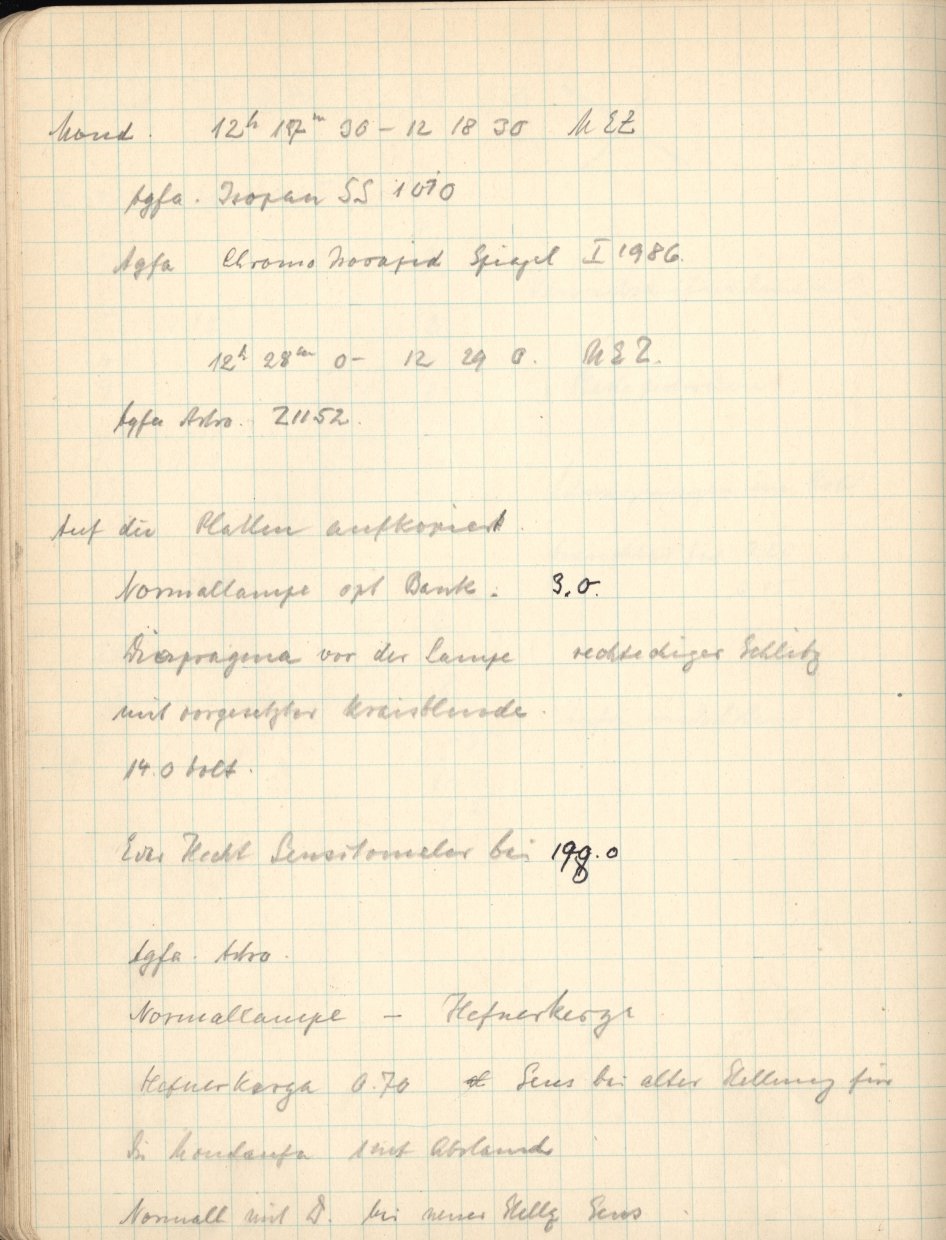 Mond. 12h 17m 30 – 12 18 30 MEZ
Agfa. Isopan SS 1010
Agfa Chromo Isorapid Spiegel I 1986.
12h 28m 0 – 12 29 0. MEZ.
Agfa Astro. Z1152.
Auf die Platten aufkopiert.
Normallampe opt Bank. 3.0.
Diapragma vor der Lampe rechteckiger Schlitz
mit vorgesetzter Kreisblende.
14.0 Volt.
Eder Hecht Sensitometer bei 199.0
Agfa. Astro.
Normallampe – Hefnerkerze
Hefnerkerze 0.70 Sens bei alter Stellung für
die Abstand
Normall mit D. bei neuer Stellg Sens